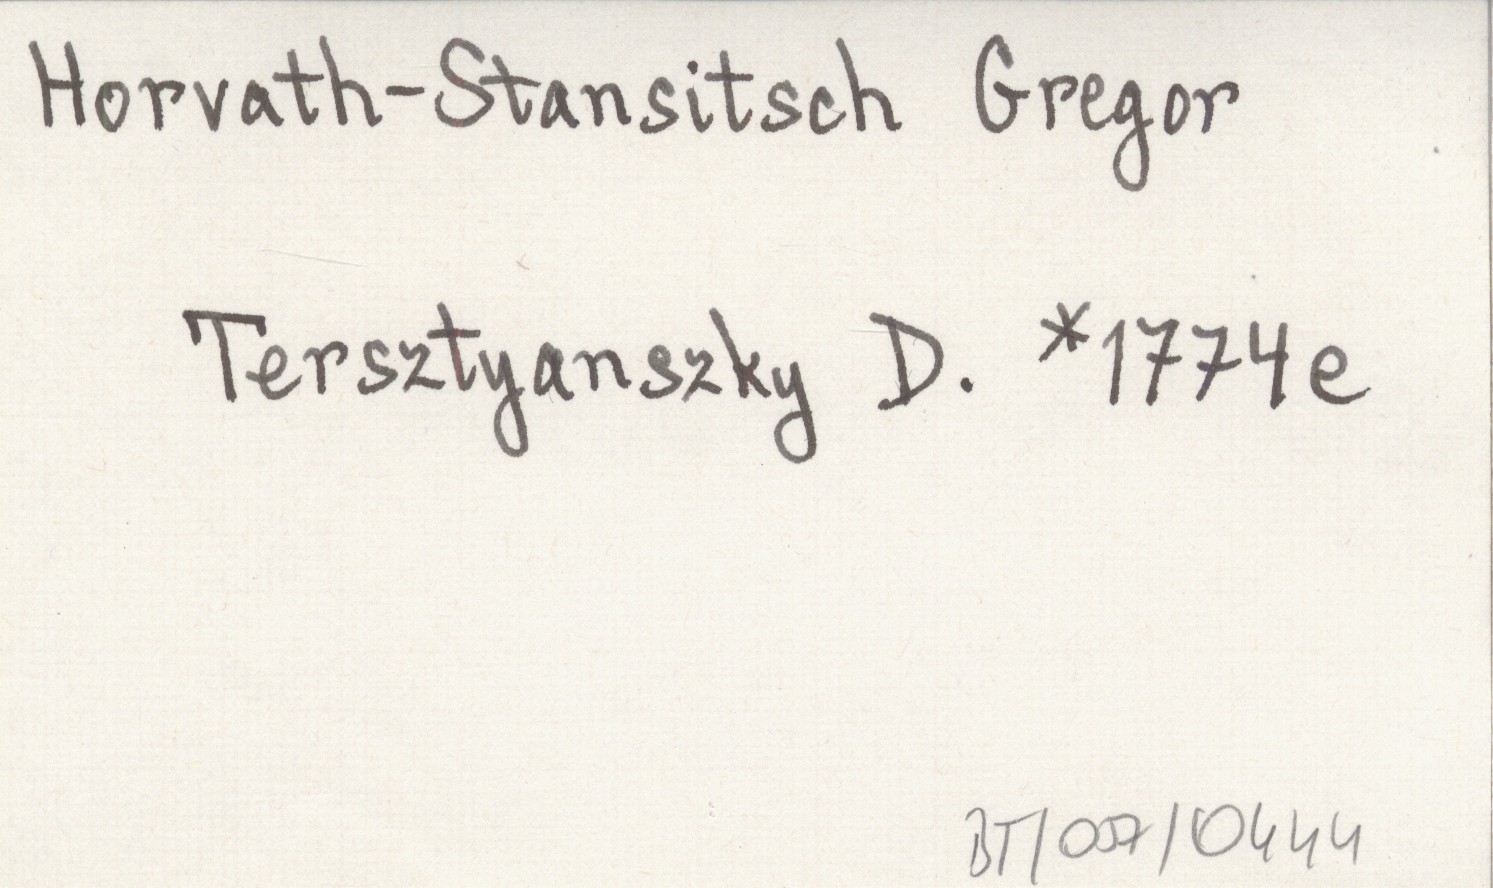 Horvath-Stansitsch Gregor
Tersztyanszky D. *1774e
BT/057/0444